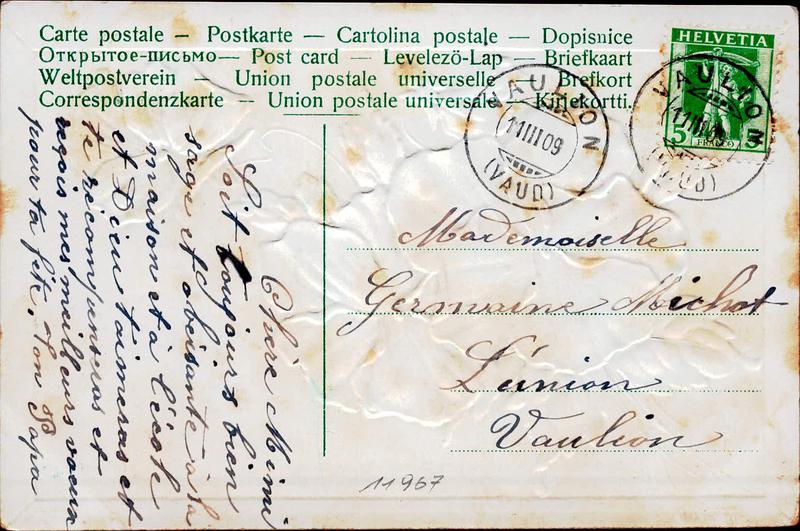 Carte postale – Postkarte – Cartolina postale – Dopisnice
Открытое-письмо – Post card – Levelezö-Lap – Briefkaart
Weltpostverein – Union postale universelle – Brefkort
Correspondenzkarte – Union postale universale – Kirjekortti.
HELVETIA
5
5
FRANCO
VAULION
11 III 09
(VAUD)
VAULION
11 III 09
(VAUD)
Chère Mimi
Soit toujours bien
sage et obeisante à la
maison et à l'école
et Dieu t'aimeras et
te récompenseras et
reçois mes meilleurs voeux
pour ta fête. Ton Papa
Mademoiselle
Germaine Michot
L'union
Vaulion
11967